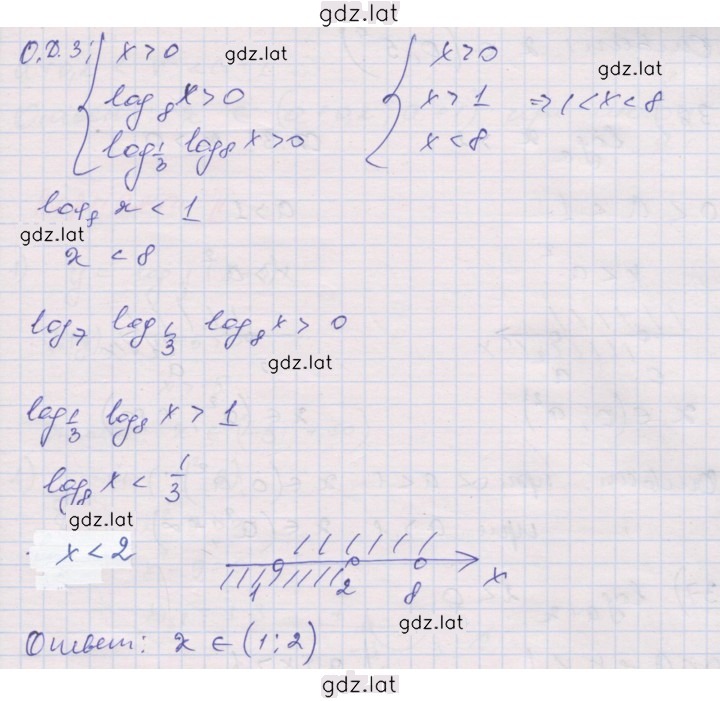 gdz.lat
О.Д.З; x > 0 gdz.lat x > 0
log₈ x > 0 x > 1 => 1 < x < 8 gdz.lat
log_{1/3} log₈ x > 0 x < 8
log₈ x < 1
gdz.lat
x < 8
log₇ log_{1/3} log₈ x > 0
gdz.lat
log_{1/3} log₈ x > 1
log₈ x < 1/3
gdz.lat
x < 2
1 2 8 x
gdz.lat
Ответ: x ∈ (1; 2)
gdz.lat